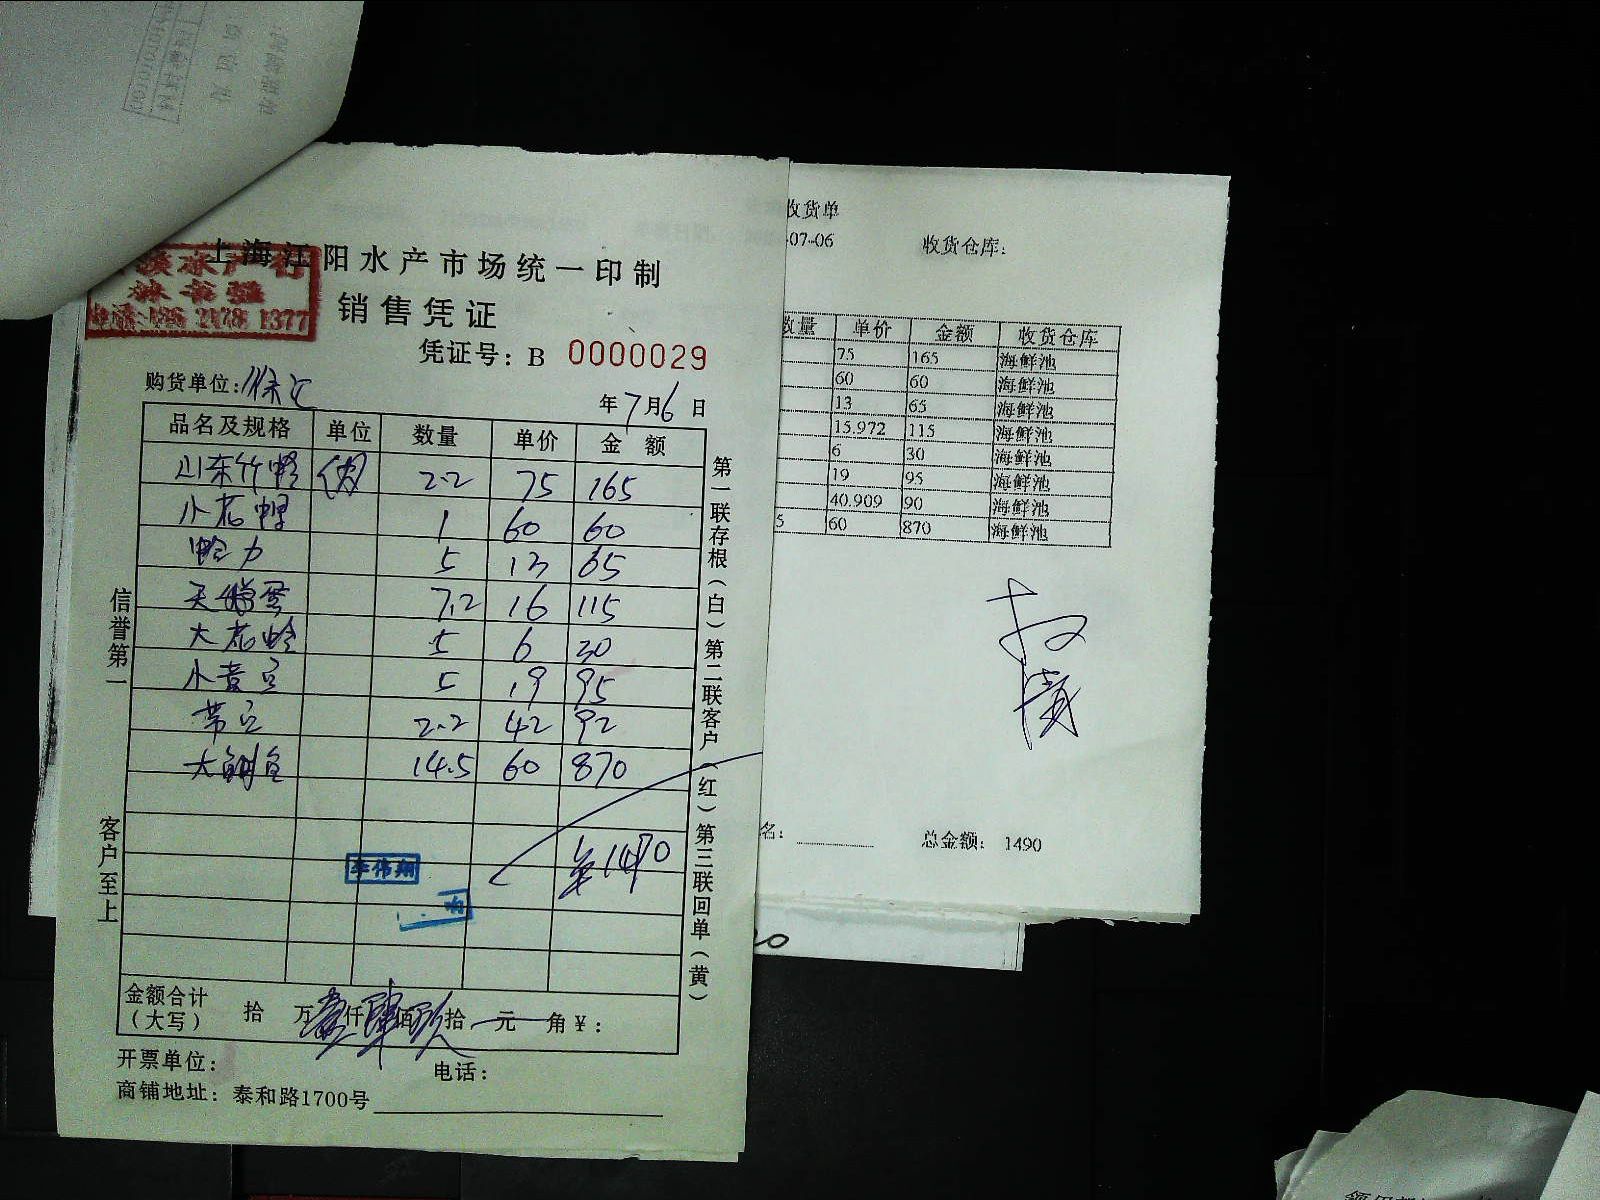 上海江阳水产市场统一印制
销售凭证
凭证号：B 0000029
购货单位：
年7月6日
品名及规格 单位 数量 单价 金额
山东竹蛏 2.2 75 165
小花甲 1 60 60
蛤力 5 13 65
天鹅蛋 7.2 16 115
大花蛤 5 6 30
小黄豆 5 19 95
2.2 42 92
大鲥鱼 14.5 60 870
1490
李伟翔
金额合计（大写） 拾 万壹仟肆佰玖拾元角￥：
开票单位： 电话：
商铺地址：泰和路1700号
信誉第一
客户至上
第一联存根（白）第二联客户（红）第三联回单（黄）
水产行
1377
收货单
-07-06 收货仓库：
数量 单价 金额 收货仓库
75 165 海鲜池
60 60 海鲜池
13 65 海鲜池
15.972 115 海鲜池
6 30 海鲜池
19 95 海鲜池
40.909 90 海鲜池
5 60 870 海鲜池
名： 总金额： 1490